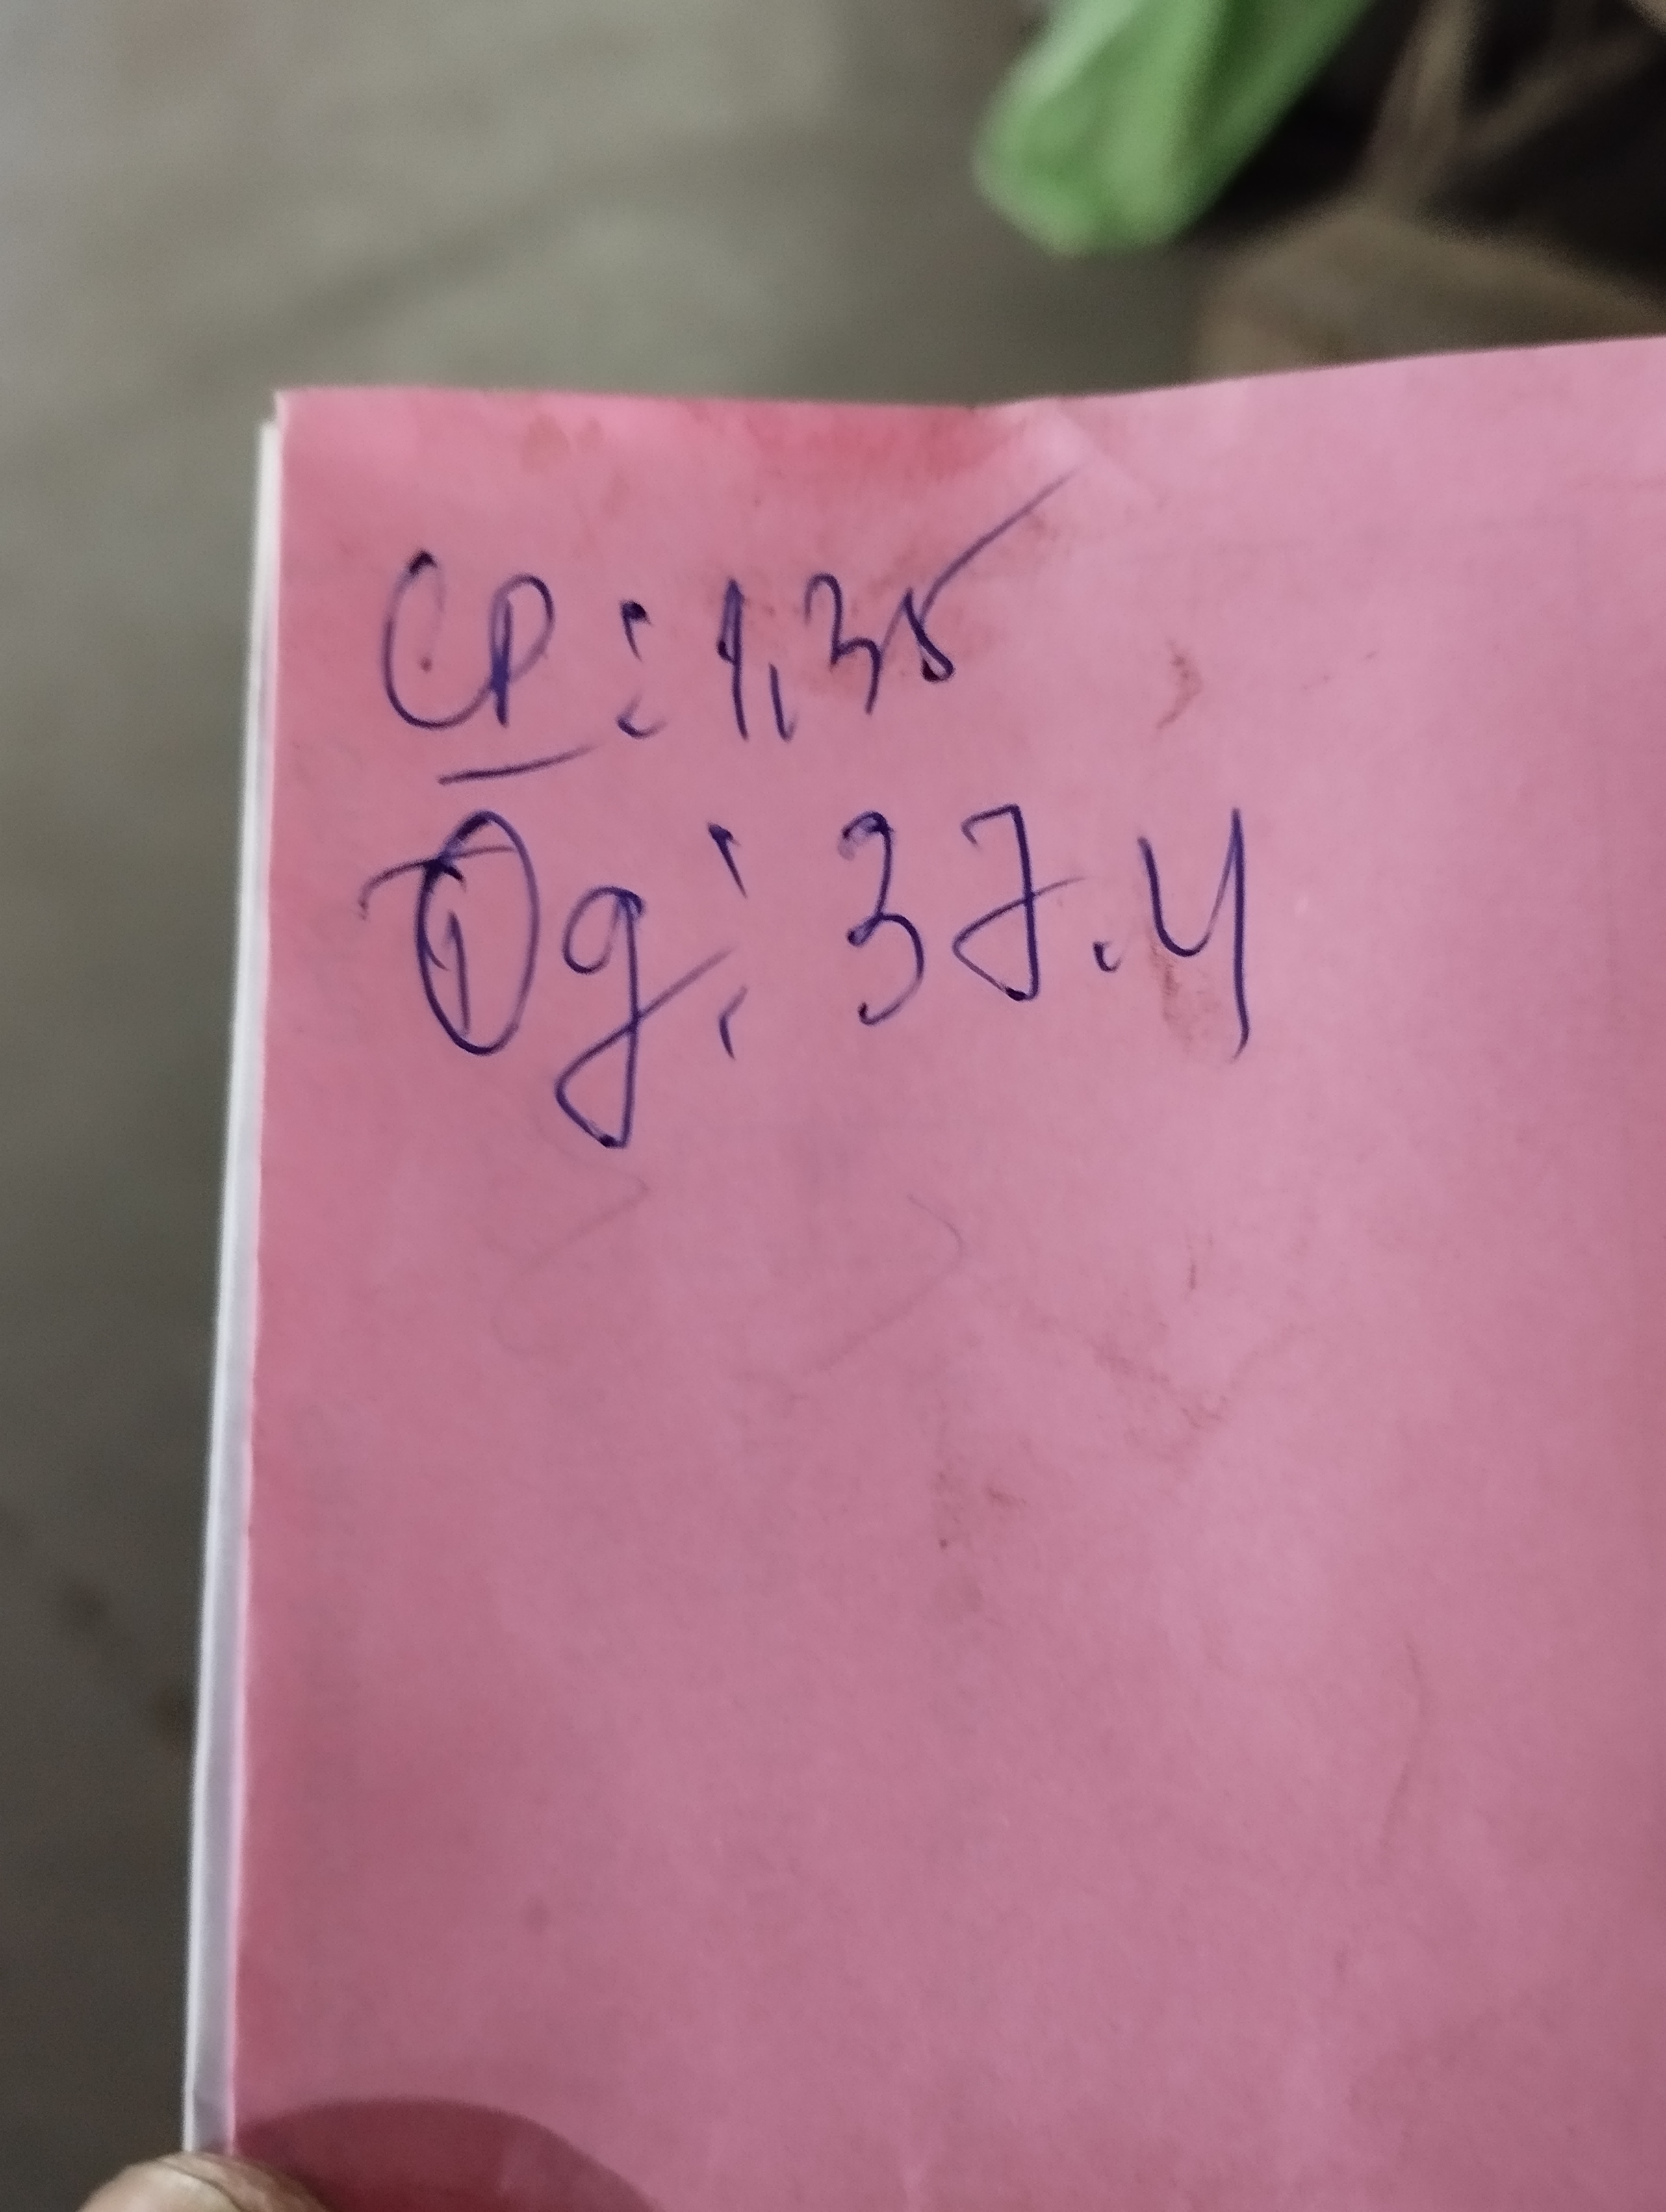 CP: 1,35
Og: 37.4